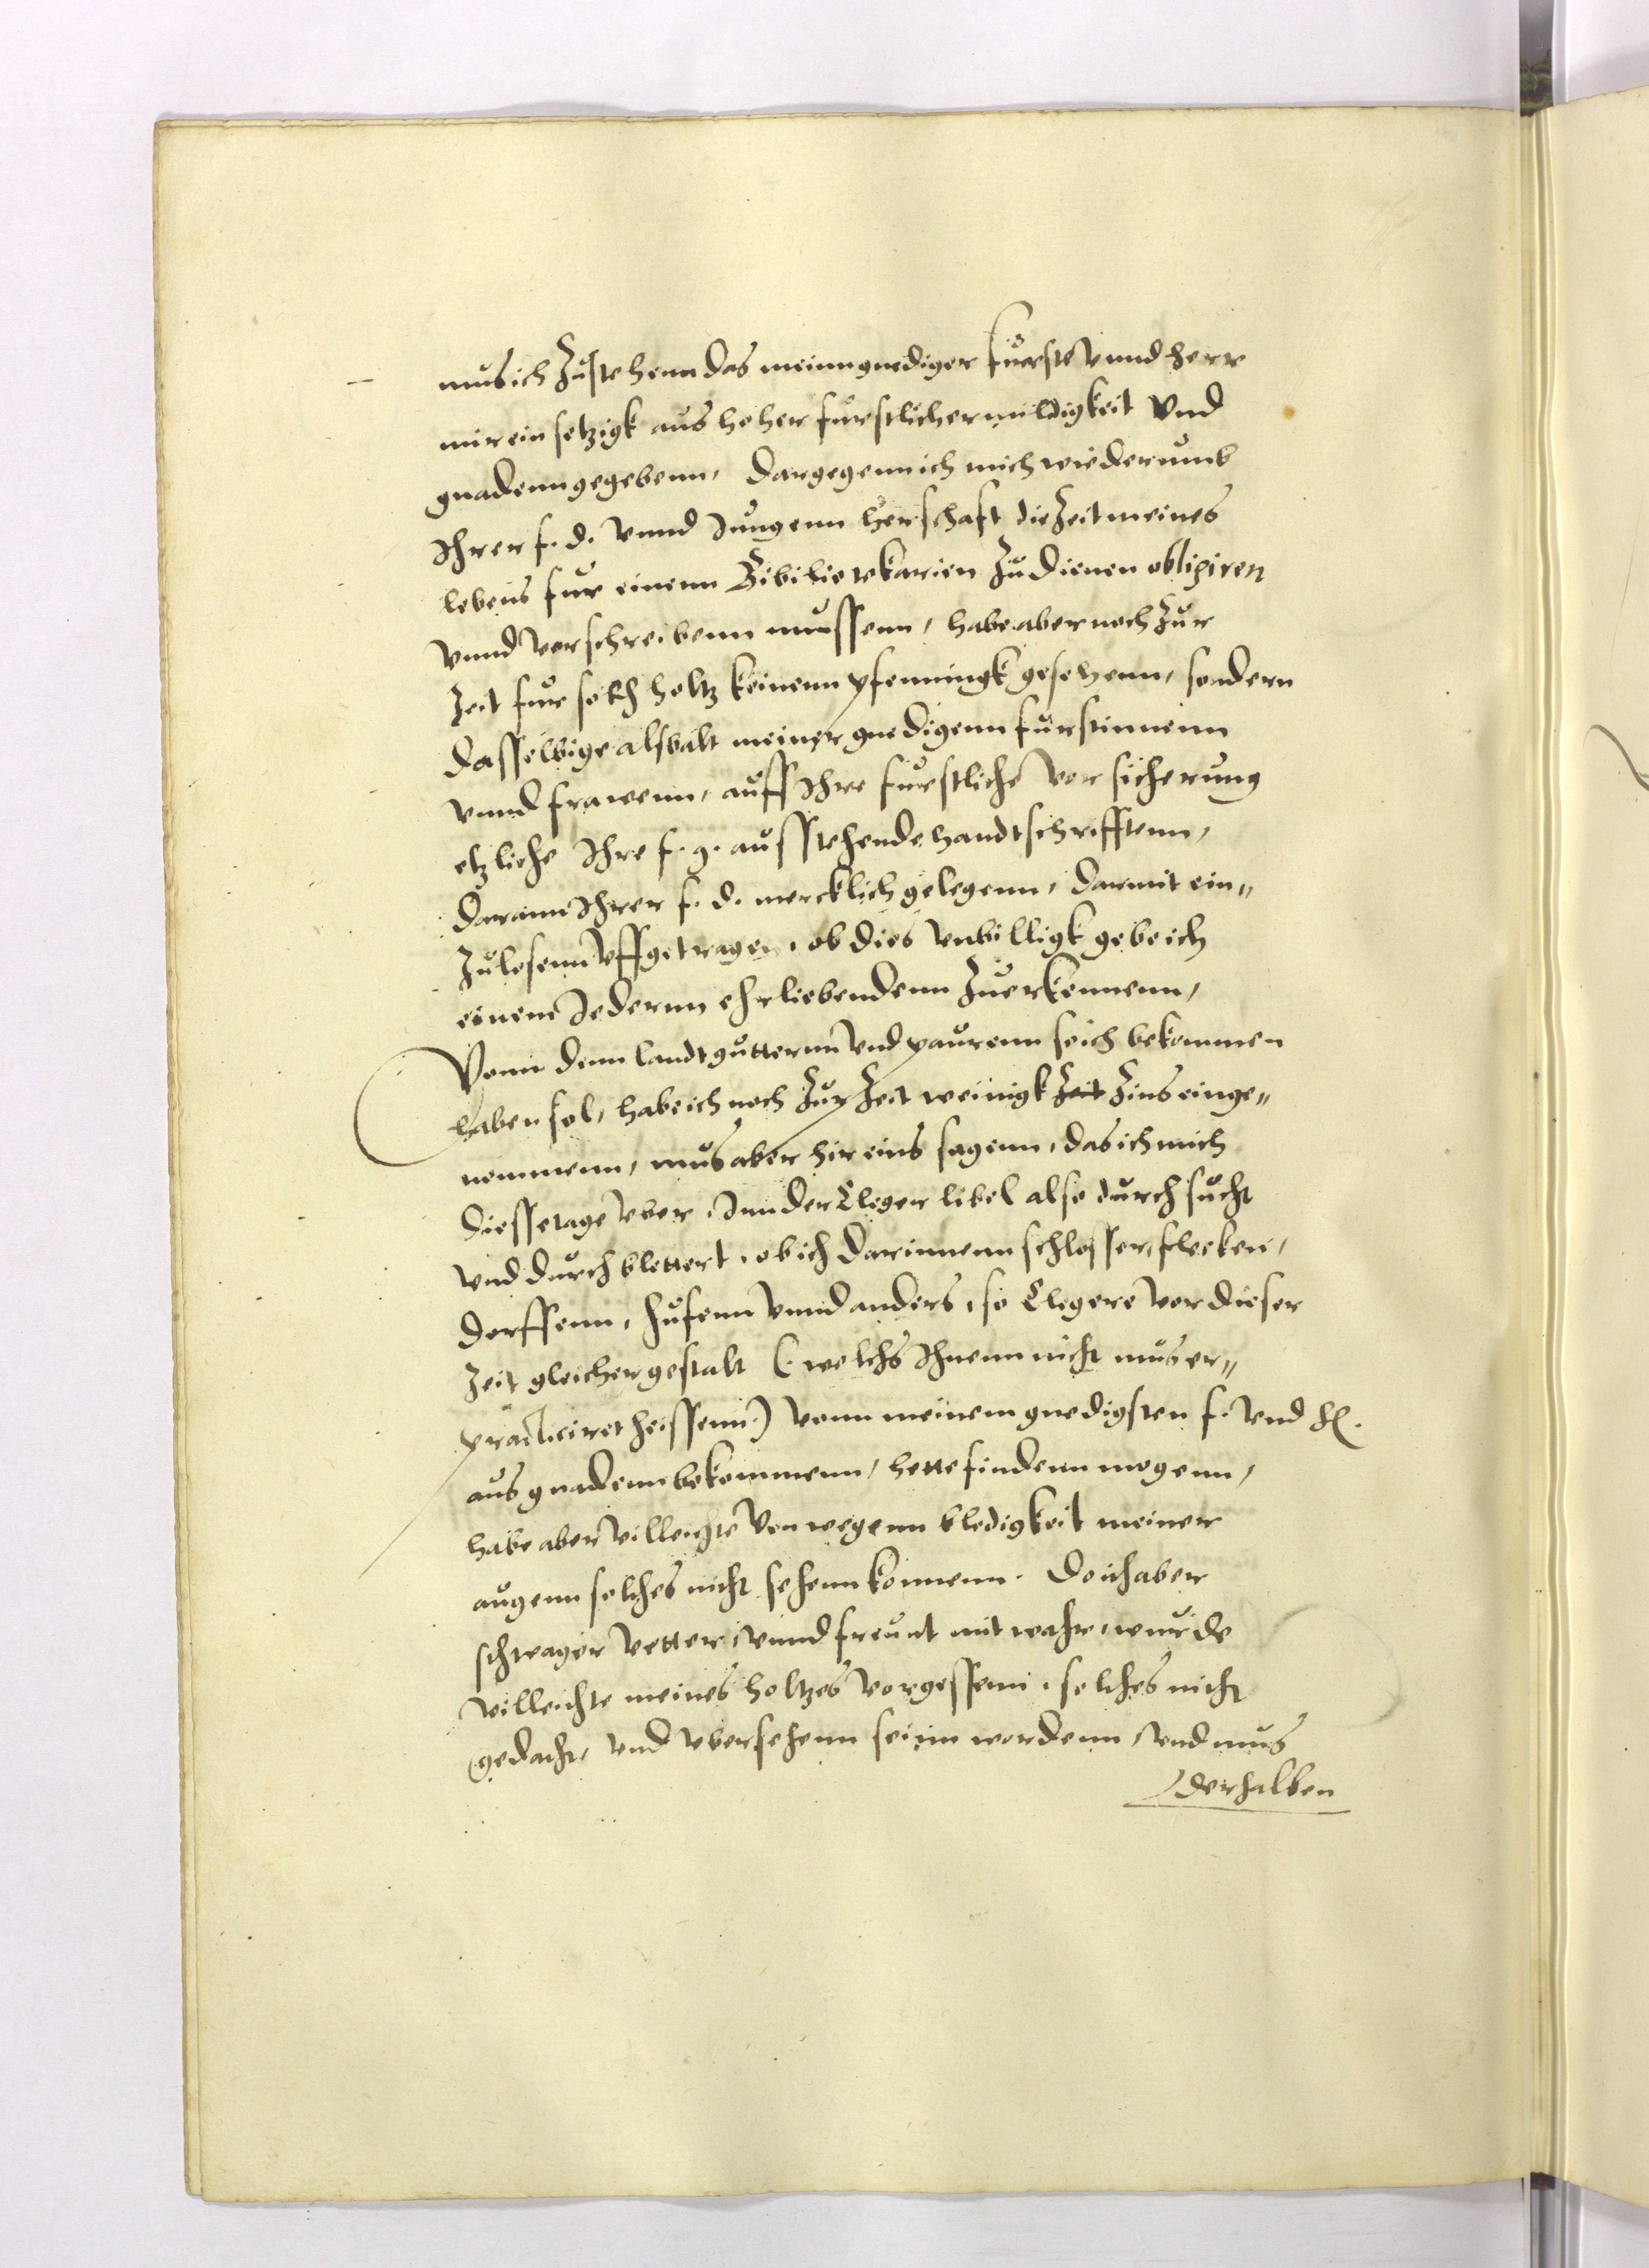 mus ich zustehenn das meinn gnediger furste vnnd herr
mir ein setzigk aus hoher furstlicher mildigkeit vnd
gnadenn gegebenn, dargegenn ich mich wiederumb
Ihrer f. d. vnnd Jungenn herschaft die zeit meines
lebens fur einenn Bibliotekarien zu dienen obligiren
vnnd vorschreibenn mussenn, habe aber noch zur
Zeit fur solch holtz keinenn pfenningk gesehenn, sondern
dasselbige alsbalt meiner gnedigenn furstinnenn
vnnd frawenn, auff Ihre furstliche vorsicherung
etzliche Ihre f. g. ausstehende handtschrifftenn,
darann Ihrer f. d. mercklich gelegenn, darmit ein=
zulosenn vffgetragen, ob dies vnbilligk gebe ich
einem Jedernn ehrliebendenn zuerkennenn,
Vonn denn landtgutternn vnd paurenn so ich bekommen
haben sol, habe ich noch zur Zeit weinigk Zeit Zins einge=
nommenn, mus aber hir eins sagenn, das ich mich
diesse tage vber, Inn der Cleger libel also durchsucht
vnd durchblettert, ob ich darinnenn schlosser, flecken,
dorffenn, hufenn vnnd anders, so Clegere vor dieser
Zeit gleicher gestalt (welchs Ihnenn nicht mus er=
practiciret heissenn) vonn meinem gnedigsten f. vnd h.
aus gnadenn bekommenn, hette findenn mogenn,
habe aber villeichte von wegenn bledigkeit meiner
augenn solches nicht sehenn konnenn. Do ich aber
schwager vetter, vnnd freunt mit wahr, wurde
villeichte meines holtzes vorgessenn, solches nicht
gedacht, vnd vbersehenn seinn wordenn, vnd mus
derhalben